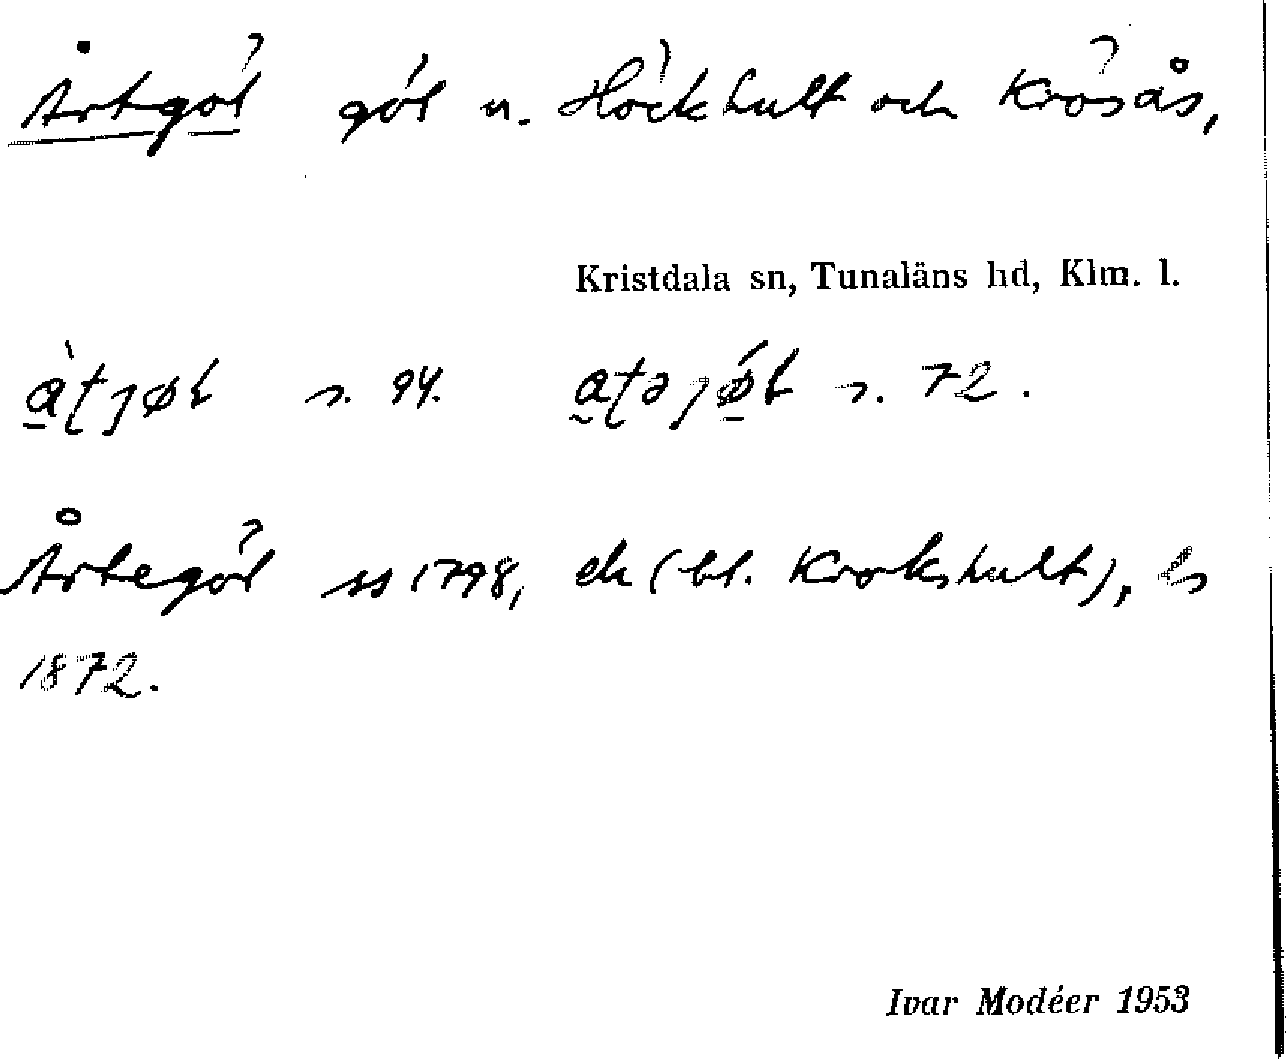 Årtgöl göl u. Höckhult och Krösås,
Kristdala sn, Tunaläns hd, Klm. l.
s. 94. s. 72.
Årtegöl ss 1798, ek (bl. Krokshult), ls
1872.
Ivar Modéer 1953